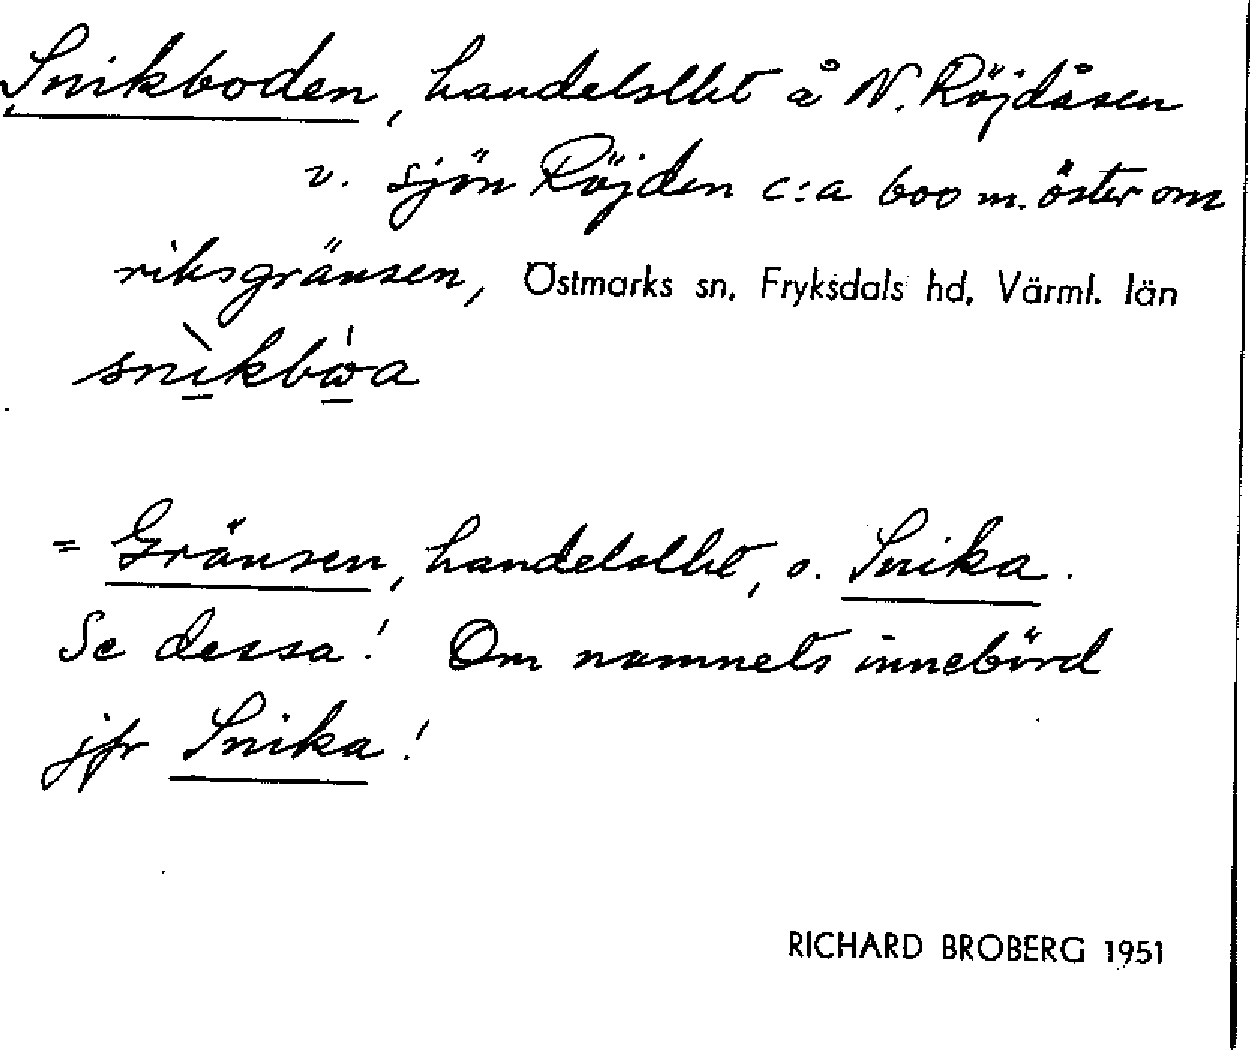 Snikboden, handelsllet å N. Röjdåsen
v. sjön Röjden c:a 600 m. öster om
riksgränsen, Östmarks sn, Fryksdals hd, Värml. län
snìkbẃa
= Gränsen, handelsllet, o. Snika.
Se dessa! Om namnets innebörd
jfr Snika!
RICHARD BROBERG 1951